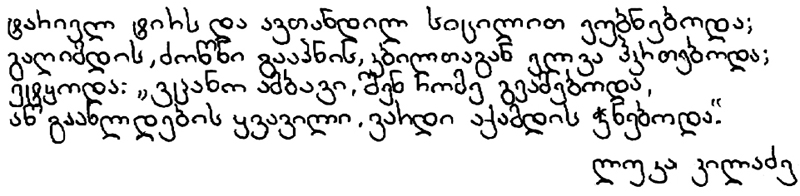 ტარიელ ტირს და ავთანდილ სიცილით ეუბნებოდა;
გაღიმდის, ძოწნი გააპნის, კბილთაგან ელვა ჰკრთებოდა;
ეტყოდა: „ვცანო ამბავი, შენ რომე გეამებოდა,
აწ გაახლდების ყვავილი, ვარდი აქამდის ჭნებოდა“.
ლუკა ვილაძე